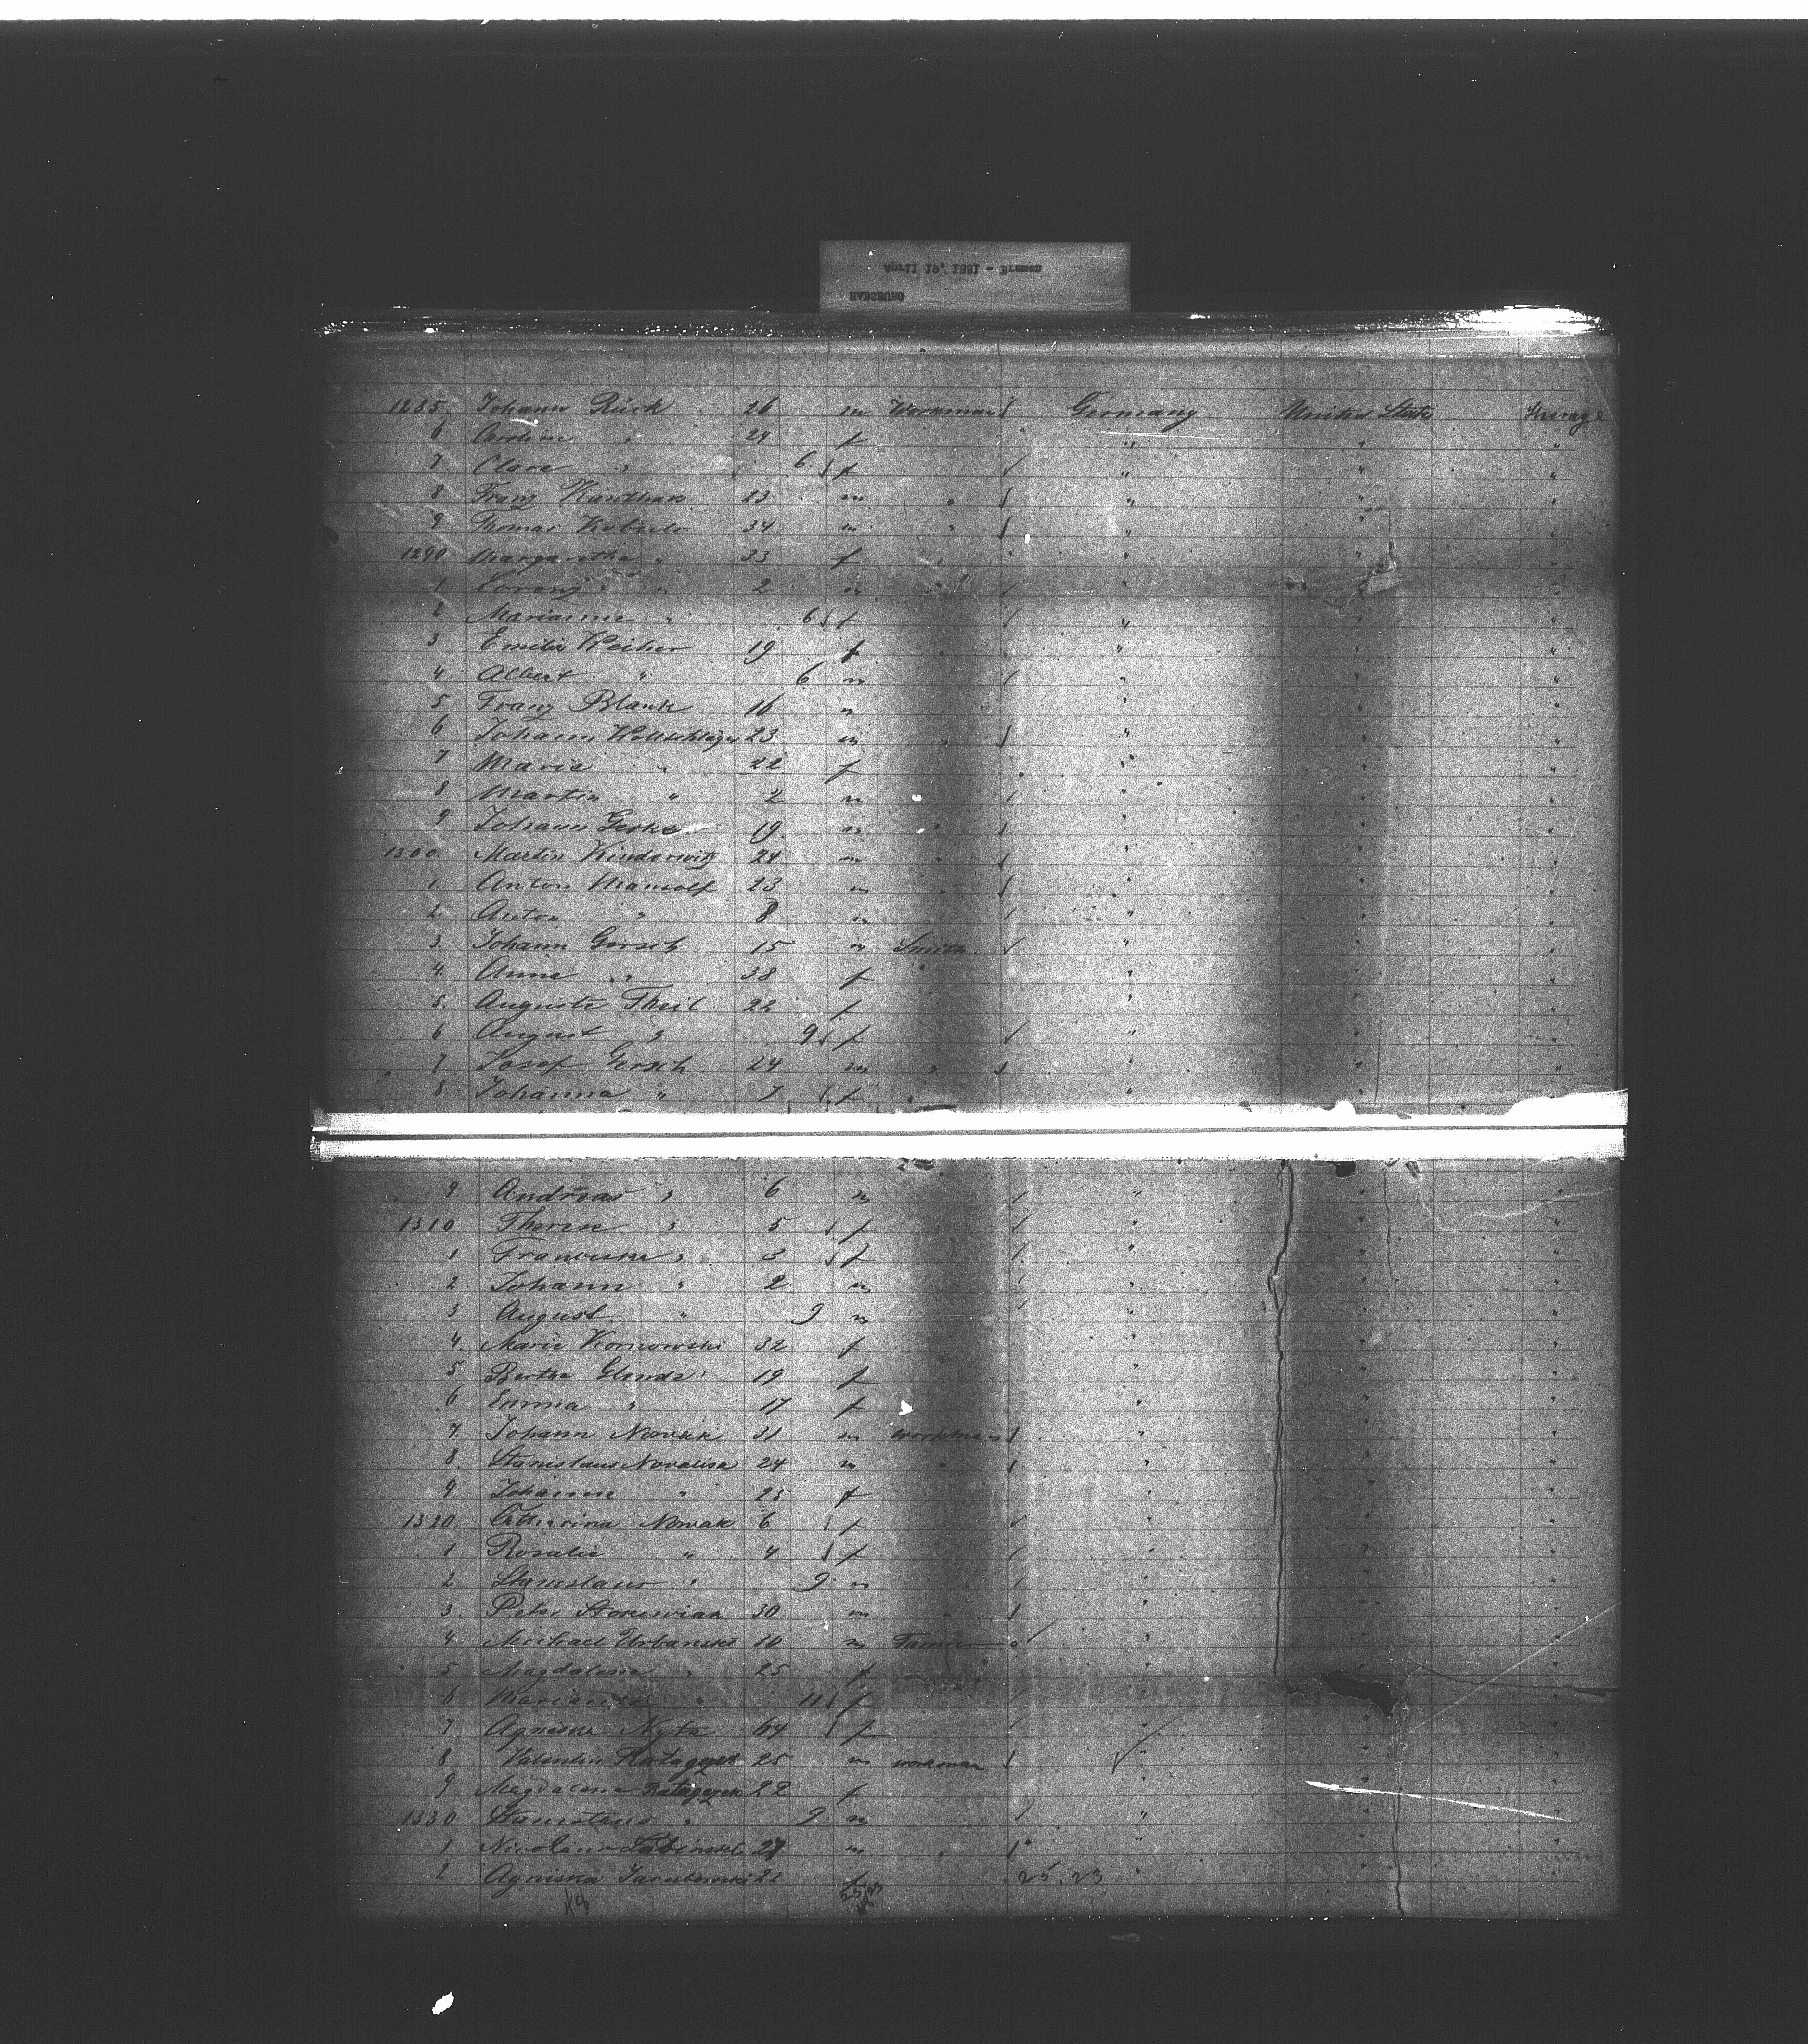 April 19, 1881 - Bremen
HABSBURG
1285. Johann Rück 26 m Workman Germany United States Steerage
6 Caroline " 24 f " " "
7 Clara " 6 f " " "
8 Franz 23 m " " " "
9 Thomas 34 m " " " "
1290 Margaretha " 33 f " " "
1 Lorenz " 2 m " "
2 Marianne " 6 f " " "
3 Emilie 19 f " " "
4 Albert " 6 m " " "
5 Franz Blank 16 m " " "
6 Johann 23 m " " " "
7 Marie " 22 f " " "
8 Martin " 2 m " " "
9 Johann 19 m " " " "
1300. Martin 24 m " " " "
1. Anton 23 m " " " "
2. Anton " 8 m " " "
3. Johann Gorsch 15 m Smith " " "
4. Anna " 38 f " " "
5. Auguste Theil 22 f " " "
6 August " 9 f " " "
7 Josef Gorsch 24 m " " " "
8 Johanna " 7 f " " "
9 Andreas " 6 m " " "
1310 Therese " 5 f " " "
1 Franciska " 3 f " " "
2 Johann " 2 m " " "
3 August " 9 m " " "
4. Marie Kornowski 32 f " " "
5 Bertha Glenda 19 f " " "
6 Emma " 17 f " " "
7. Johann Nowak 31 m workman " " "
8 Stanislaus 24 m " " " "
9. Johanna " 25 f " " "
1320. Catharina Nowak 6 f " " "
1 Rosalie " 4 f " " "
2 Stanislaus " 9 m " " "
3. Peter 30 m " " " "
4 Michael Urbanski m Farmer " " "
5 Magdalena " 25 f " " "
6 Marianna " 11 f " " "
7 Agniska Nyta 64 f " " "
8 Valentin 25 m workman " " "
9 Magdalena 22 f " " "
1330 Stanislaus " 9 m " " "
1 Nicolaus m " " " "
2 Agniska f 25.23 " " "
48